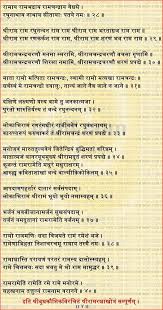 रामाय रामभद्राय रामचन्द्राय वेधसे ।
रघुनाथाय नाथाय सीतायाः पतये नमः ॥
श्रीराम राम रघुनन्दन राम राम श्रीराम राम भरताग्रज राम राम ।
श्रीराम राम रणकर्कश राम राम श्रीराम राम शरणं भव राम राम ॥
श्रीरामचन्द्रचरणौ मनसा स्मरामि श्रीरामचन्द्रचरणौ वचसा गृणामि ।
श्रीरामचन्द्रचरणौ शिरसा नमामि श्रीरामचन्द्रचरणौ शरणं प्रपद्ये ॥
माता रामो मत्पिता रामचन्द्रः स्वामी रामो मत्सखा रामचन्द्रः ।
सर्वस्वं मे रामचन्द्रो दयालुर्नान्यं जाने नैव जाने न जाने ॥
दक्षिणे लक्ष्मणो यस्य वामे तु जनकात्मजा ।
पुरतो मारुतिर्यस्य तं वन्दे रघुनन्दनम् ॥
लोकाभिरामं रणरङ्गधीरं राजीवनेत्रं रघुवंशनाथम् ।
कारुण्यरूपं करुणाकरं तं श्रीरामचन्द्रं शरणं प्रपद्ये ॥
मनोजवं मारुततुल्यवेगं जितेन्द्रियं बुद्धिमतां वरिष्ठम् ।
वातात्मजं वानरयूथमुख्यं श्रीरामदूतं शरणं प्रपद्ये ॥
कूजन्तं रामरामेति मधुरं मधुराक्षरम् ।
आरुह्य कविताशाखां वन्दे वाल्मीकिकोकिलम् ॥
आपदामपहर्तारं दातारं सर्वसम्पदाम् ।
लोकाभिरामं श्रीरामं भूयो भूयो नमाम्यहम् ॥
भर्जनं भवबीजानामर्जनं सुखसम्पदाम् ।
तर्जनं यमदूतानां रामरामेति गर्जनम् ॥
रामो राजमणिः सदा विजयते रामं रमेशं भजे
रामेणाभिहता निशाचरचमू रामाय तस्मै नमः ।
रामान्नास्ति परायणं परतरं रामस्य दासोऽस्म्यहं
रामे चित्तलयः सदा भवतु मे भो राम मामुद्धर ॥
राम रामेति रामेति रमे रामे मनोरमे ।
सहस्रनाम तत्तुल्यं रामनाम वरानने ॥
इति श्रीबुधकौशिकविरचितं श्रीरामरक्षास्तोत्रं सम्पूर्णम् ।